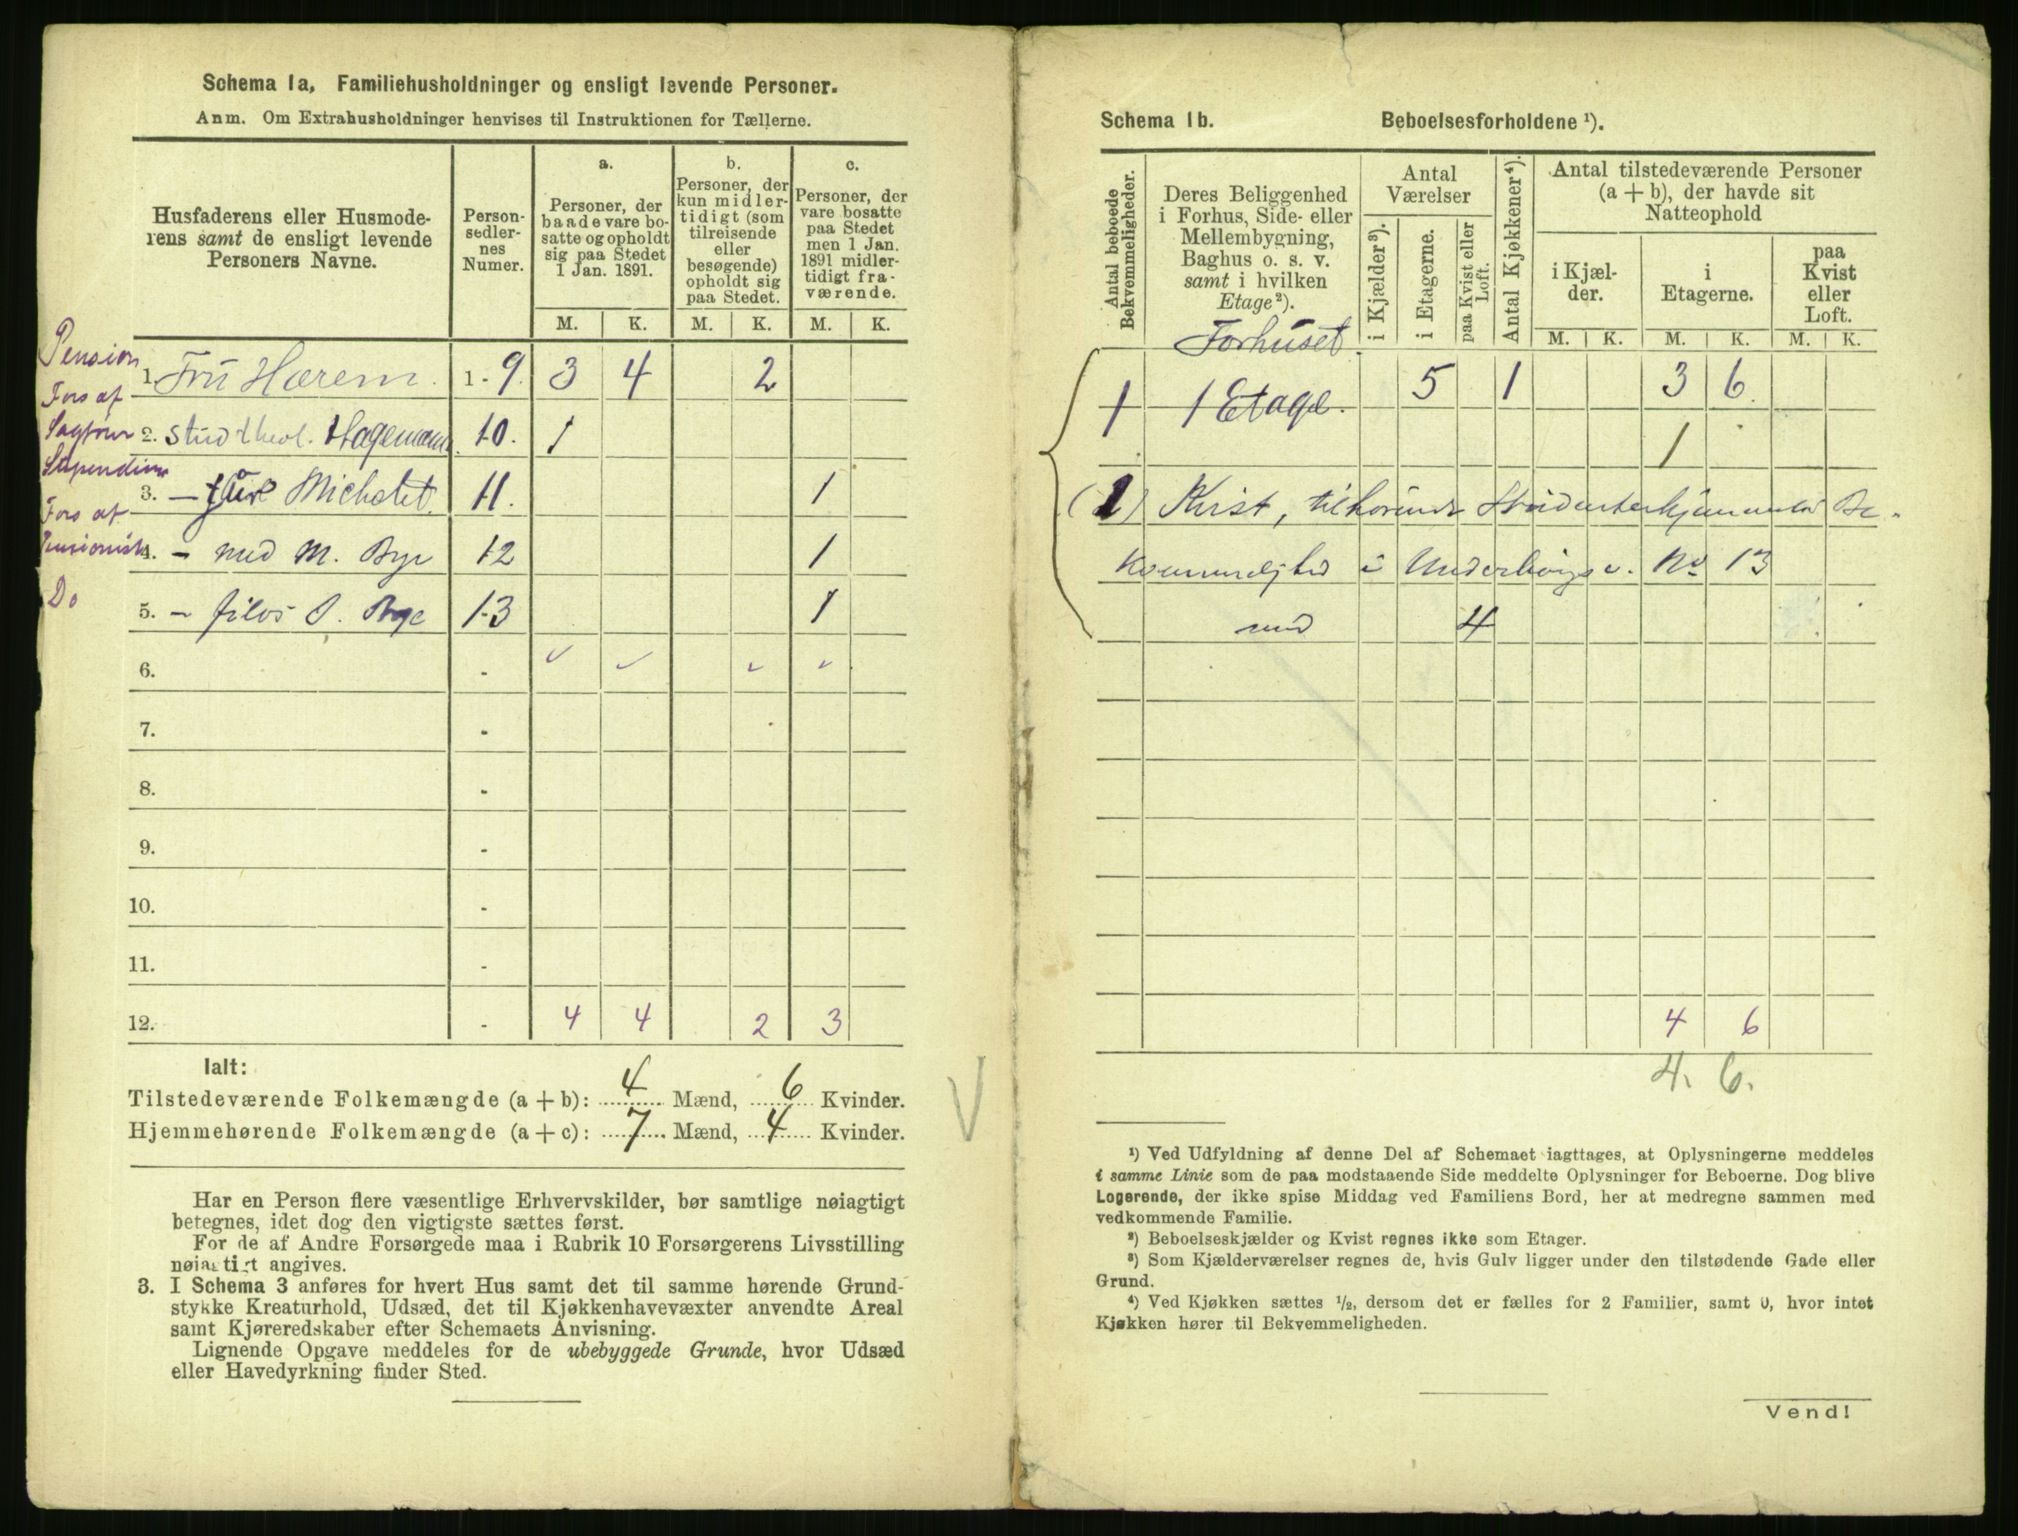 Schema 1a. Familiehusholdninger og ensligt levende Personer.
Anm. Om Extrahusholdninger henvises til Instruktionen for Tællerne.
Husfaderens eller Husmode-
rens samt de ensligt levende
Personers Navne.
Person-
sedler-
nes
Numer.
a.
Personer, der
baade vare bo-
satte og opholdt
sig paa Stedet
1 Jan. 1891.
b.
Personer, der
kun midler-
tidigt (som
tilreisende
eller
besøgende)
opholdt sig
paa Stedet.
c.
Personer, der
vare bosatte
paa Stedet
men 1 Jan.
1891 midler-
tidigt fra-
værende.
M. K. M. K. M. K.
Pension
1. Fru Hærem. 1-9 3 4 2
Fors af
Sagfører
2. stud theol. Hagemann 10. 1
Stipendium
3. - Michelet 11. 1
Fors af
Pensionist
4. - med M. Bye 12 1
Do
5. - filos O. Bye 13 1
6. -
7. -
8. -
9. -
10. -
11. -
12. - 4 4 2 3
Ialt:
Tilstedeværende Folkemængde (a + b): 4 Mænd, 6 Kvinder.
Hjemmehørende Folkemængde (a + c): 7 Mænd, 4 Kvinder.
Har en Person flere væsentlige Erhvervskilder, bør samtlige nøiagtigt
betegnes, idet dog den vigtigste sættes først.
For de af Andre Forsørgede maa i Rubrik 10 Forsørgerens Livsstilling
nøiagtigt angives.
3. I Schema 3 anføres for hvert Hus samt det til samme hørende Grund-
stykke Kreaturhold, Udsæd, det til Kjøkkenhavevæxter anvendte Areal
samt Kjøreredskaber efter Schemaets Anvisning.
Lignende Opgave meddeles for de ubebyggede Grunde, hvor Udsæd
eller Havedyrkning finder Sted.
Schema 1b. Beboelsesforholdene ¹).
Antal beboede
Bekvemmeligheder.
Deres Beliggenhed
i Forhus, Side- eller
Mellembygning,
Baghus o. s. v.
samt i hvilken
Etage²).
Antal
Værelser
i Kjælder³).
i Etagerne.
paa Kvist eller
Loft.
Antal Kjøkkener⁴).
Antal tilstedeværende Personer
(a + b), der havde sit
Natteophold
i Kjæl-
der.
i
Etagerne.
paa
Kvist
eller
Loft.
M. K. M. K. M. K.
Forhuset
1 1 Etage. 5 1 3 6
1
(1) Kvist, tilhørende Studenterhjemmets Be-
kvemmelighed i Underhaugsv. No 13
med 4
4 6
4. 6.
¹) Ved Udfyldning af denne Del af Schemaet iagttages, at Oplysningerne meddeles
i samme Linie som de paa modstaaende Side meddelte Oplysninger for Beboerne. Dog blive
Logerende, der ikke spise Middag ved Familiens Bord, her at medregne sammen med
vedkommende Familie.
²) Beboelseskjælder og Kvist regnes ikke som Etager.
³) Som Kjælderværelser regnes de, hvis Gulv ligger under den tilstødende Gade eller
Grund.
⁴) Ved Kjøkken sættes ½, dersom det er fælles for 2 Familier, samt 0, hvor intet
Kjøkken hører til Bekvemmeligheden.
Vend!